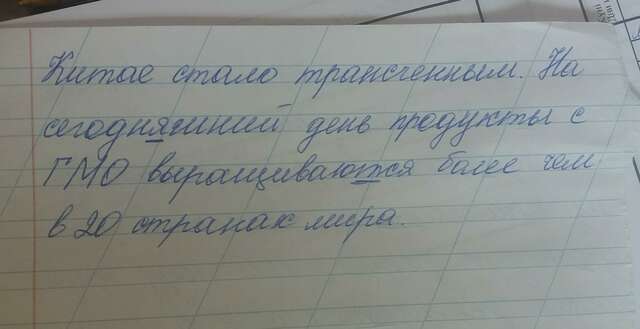 Китае стало трансгенным. На
сегодняшний день продукты с
ГМО выращиваются более чем
в 20 странах мира.